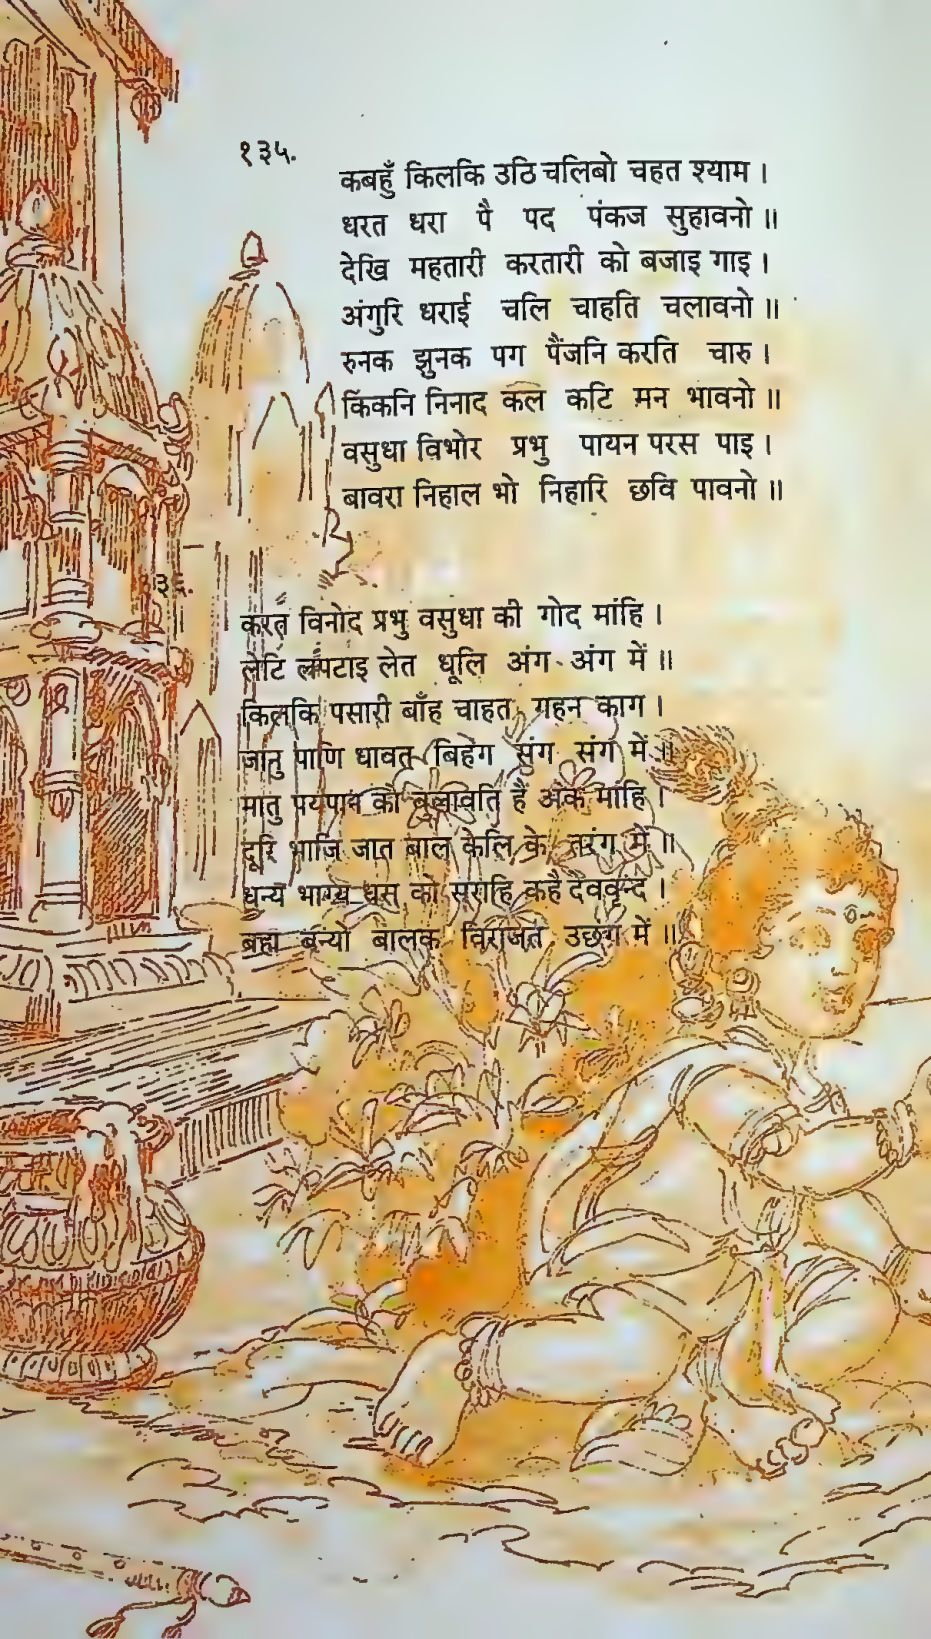 १३५.
कबहुँ किलकि उठि चलिबो चहत श्याम ।
धरत धरा पै पद पंकज सुहावनो ॥
देखि महतारी करतारी को बजाइ गाइ ।
अंगुरि धराई चलि चाहति चलावनो ॥
रुनक झुनक पग पैंजनि करति चारु ।
किंकनि निनाद कल कटि मन भावनो ॥
वसुधा विभोर प्रभु पायन परस पाइ ।
बावरा निहाल भो निहारि छवि पावनो ॥
१३६.
करत विनोद प्रभु वसुधा की गोद मांहि ।
लेटि लपटाइ लेत धूलि अंग - अंग में ॥
किलकि पसारी बाँह चाहत गहन काग ।
जानु पाणि धावत बिहंग संग संग में ॥
मातु पयपान को बुलावति हैं अंक मांहि ।
दूरि भाजि जात बाल केलि के तरंग में ॥
धन्य भाग्य को सराहि कहै देववृन्द ।
ब्रह्म बन्यो बालक विराजत उछंग में ॥